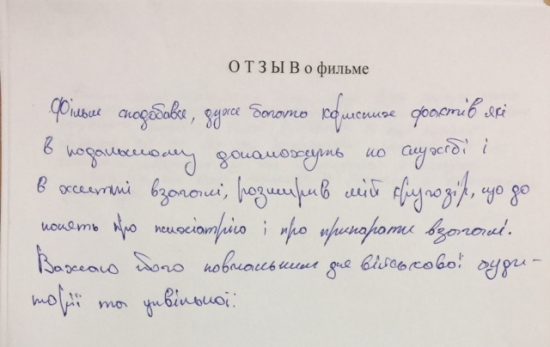 О Т З Ы В о фильме
Фільм сподобався, дуже багато корисних фактів які
в подальшому допоможуть по службі і
в житті взагалі, розширив мій кругозір, що до
понять про психіатрію і про препарати взагалі.
Важаю його повчальним для військової ауди-
торії та цивільної.